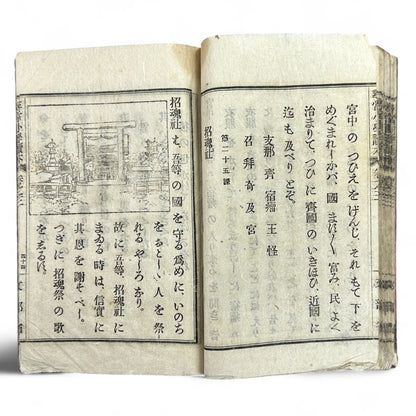 宮中のつひえをげんじ、それもて下を
めぐまれしかば、國ます〳〵富み、民よく
治まりて、つひに齊國のいきほひ、近國に
迄も及べりとぞ。
支那 齊 宿瘤 王 怪
召 拜 奇 及 宮
第二十五課
招魂社
招魂社は、吾等の國を守る爲めに、いのち
をおとしゝ人を祭
れるやしろなり。
故に、吾等、招魂社に
まゐる時は、信實に
其恩を謝すべし。
つぎに招魂祭の歌
をしるす。